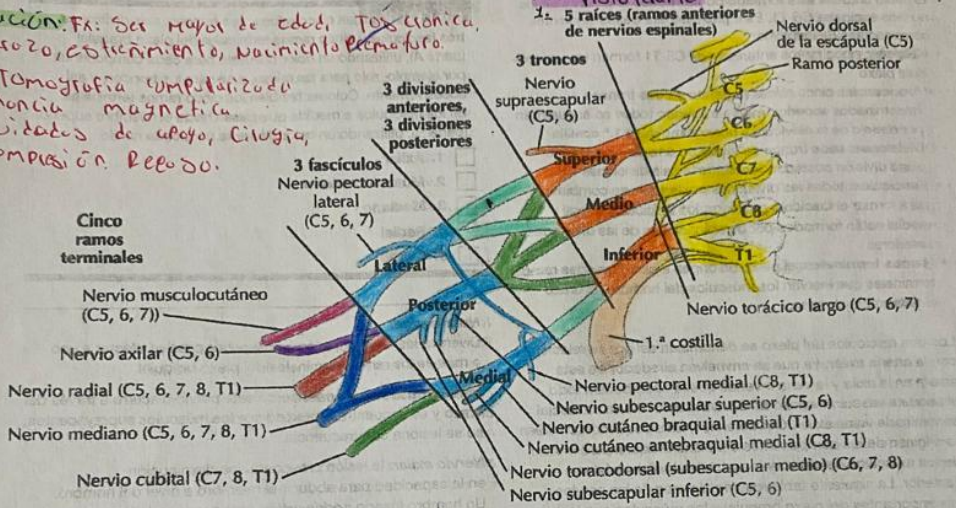 ción. Fx: Ser mayor de edad, Tos cronica,
estreñimiento, Nacimiento Prematuro.
Tomografía computarizada
magnetica.
de apoyo, Cirugía,
Reposo.
1. 5 raíces (ramos anteriores
de nervios espinales)
Nervio dorsal
de la escápula (C5)
Ramo posterior
3 troncos
Nervio
supraescapular
(C5, 6)
3 divisiones
anteriores,
3 divisiones
posteriores
3 fascículos
Nervio pectoral
lateral
(C5, 6, 7)
Cinco
ramos
terminales
C5
C6
C7
C8
T1
Superior
Medio
Inferior
Lateral
Posterior
Medial
Nervio musculocutáneo
(C5, 6, 7))
Nervio axilar (C5, 6)
Nervio radial (C5, 6, 7, 8, T1)
Nervio mediano (C5, 6, 7, 8, T1)
Nervio cubital (C7, 8, T1)
Nervio torácico largo (C5, 6, 7)
1.ª costilla
Nervio pectoral medial (C8, T1)
Nervio subescapular superior (C5, 6)
Nervio cutáneo braquial medial (T1)
Nervio cutáneo antebraquial medial (C8, T1)
Nervio toracodorsal (subescapular medio) (C6, 7, 8)
Nervio subescapular inferior (C5, 6)